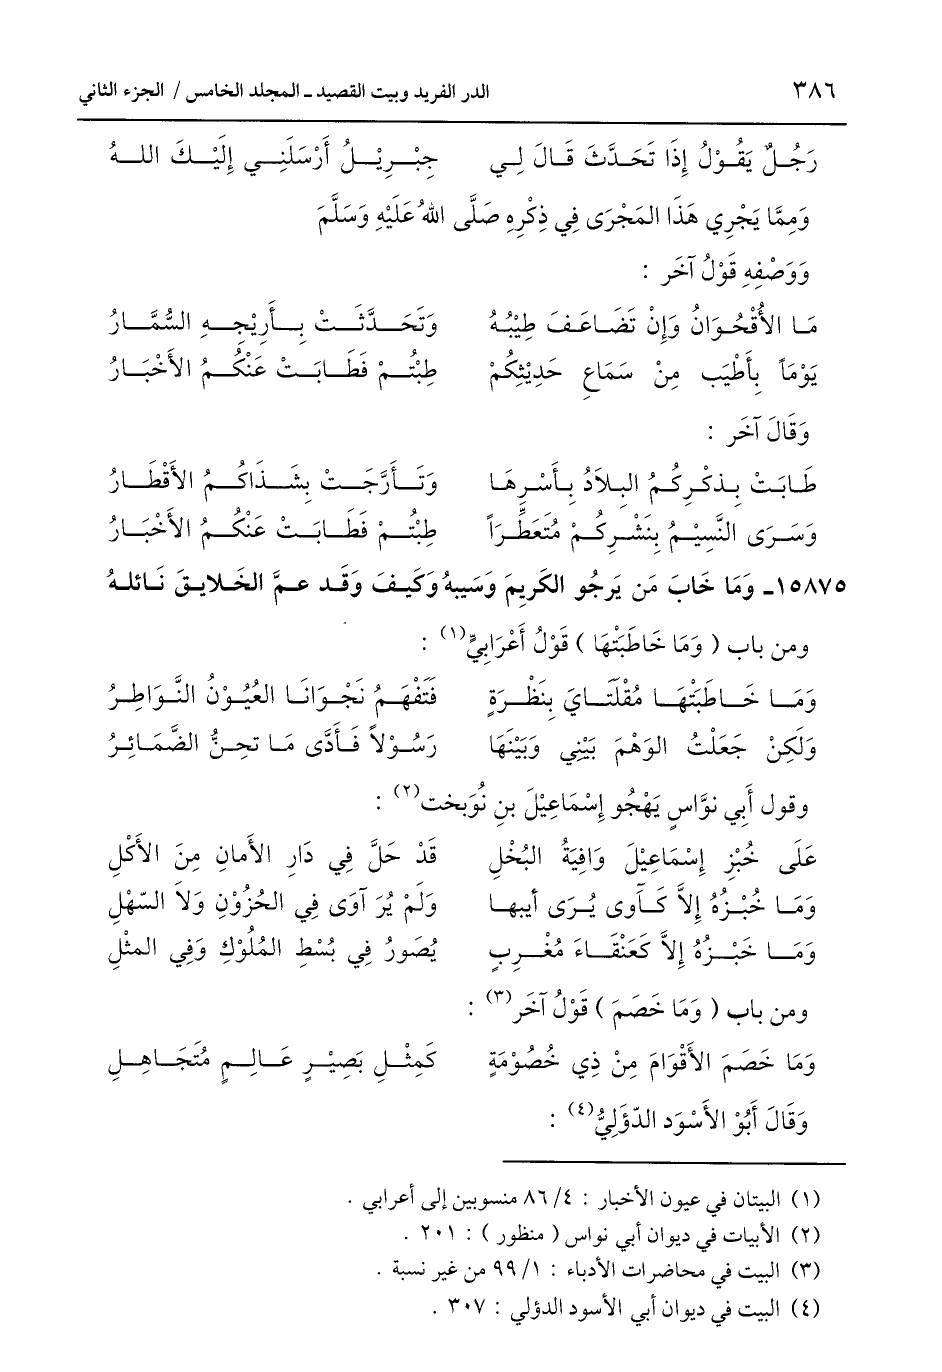 ٣٨٦ الدر الفريد وبيت القصيد ـ المجلد الخامس / الجزء الثاني
رَجُلٌ يَقُوْلُ إِذَا تَحَدَّثَ قَالَ لِي جِبْرِيْلُ أَرْسَلَنِي إِلَيْكَ اللهُ
وَمِمَّا يَجْرِي هَذَا المَجْرَى فِي ذِكْرِهِ صَلَّى اللهُ عَلَيْهِ وَسَلَّمَ
وَوَصْفِهِ قَوْلُ آخَر :
مَا الأُقْحُوَانُ وَإِنْ تَضَاعَفَ طِيْبُهُ وَتَحَدَّثَتْ بِأَرِيْجِهِ السُّمَّارُ
يَوْمَاً بِأَطْيَب مِنْ سَمَاعِ حَدِيْثِكُمْ طِبْتُمْ فَطَابَتْ عَنْكُمُ الأَخْبَارُ
وَقَالَ آخَر :
طَابَتْ بِذكْرِكُمُ البِلاَدُ بِأَسْرِهَا وَتَأَرَّجَتْ بِشَذَاكُمُ الأَقْطَارُ
وَسَرَى النَّسِيْمُ بِنَشْرِكُمْ مُتَعَطِّرَاً طِبْتُم فَطَابَتْ عَنْكُمُ الأَخْبَارُ
١٥٨٧٥ـ وَمَا خَابَ مَن يَرجُو الكَرِيمَ وَسَيبهُ وَكَيفَ وَقَد عمَّ الخَلايقَ نَائلهُ
ومن باب ( وَمَا خَاطَبَتْهَا ) قَوْلُ أَعْرَابِيٍّ(١) :
وَمَا خَاطَبَتْهَا مُقْلَتَايَ بِنَظْرَةٍ فَتَفْهَمُ نَجْوَانَا العُيُوْنُ النَّوَاطِرُ
وَلَكِنْ جَعَلْتُ الوَهْمَ بَيْنِي وَبَيْنَهَا رَسُوْلاً فَأَدَّى مَا تحِنُّ الضَّمَائِرُ
وقول أَبِي نوَّاسٍ يَهْجُو إِسْمَاعِيْلَ بنِ نُوَبخت(٢) :
عَلَى خُبْزِ إِسْمَاعِيْلَ وَاقِيَةُ البُخْلِ قَدْ حَلَّ فِي دَارِ الأَمَانِ مِنَ الأَكْلِ
وَمَا خُبْزهُ إِلاَّ كَآوى يُرَى أبيها وَلَمْ يُرَ آوَى فِي الحُزُوْنِ وَلاَ السّهْلِ
وَمَا خَبْزُهُ إِلاَّ كَعَنْقَاءَ مُغْرِبٍ يُصَورُ فِي بُسْطِ المُلُوْكِ وَفِي المثْلِ
ومن باب ( وَمَا خَصَمَ ) قَوْلُ آخَر(٣) :
وَمَا خَصَمَ الأَقْوَامَ مِنْ ذِي خُصُوْمَةٍ كَمِثْلِ بَصِيْرٍ عَالِمٍ مُتَجَاهِلِ
وَقَالَ أَبُوْ الأَسْوَد الدّؤَلِيُّ(٤) :
(١) البيتان في عيون الأخبار : ٤/ ٨٦ منسوبين إلى أعرابي .
(٢) الأبيات في ديوان أبي نواس ( منظور ) : ٢٠١ .
(٣) البيت في محاضرات الأدباء : ١/ ٩٩ من غير نسبة .
(٤) البيت في ديوان أبي الأسود الدؤلي : ٣٠٧ .